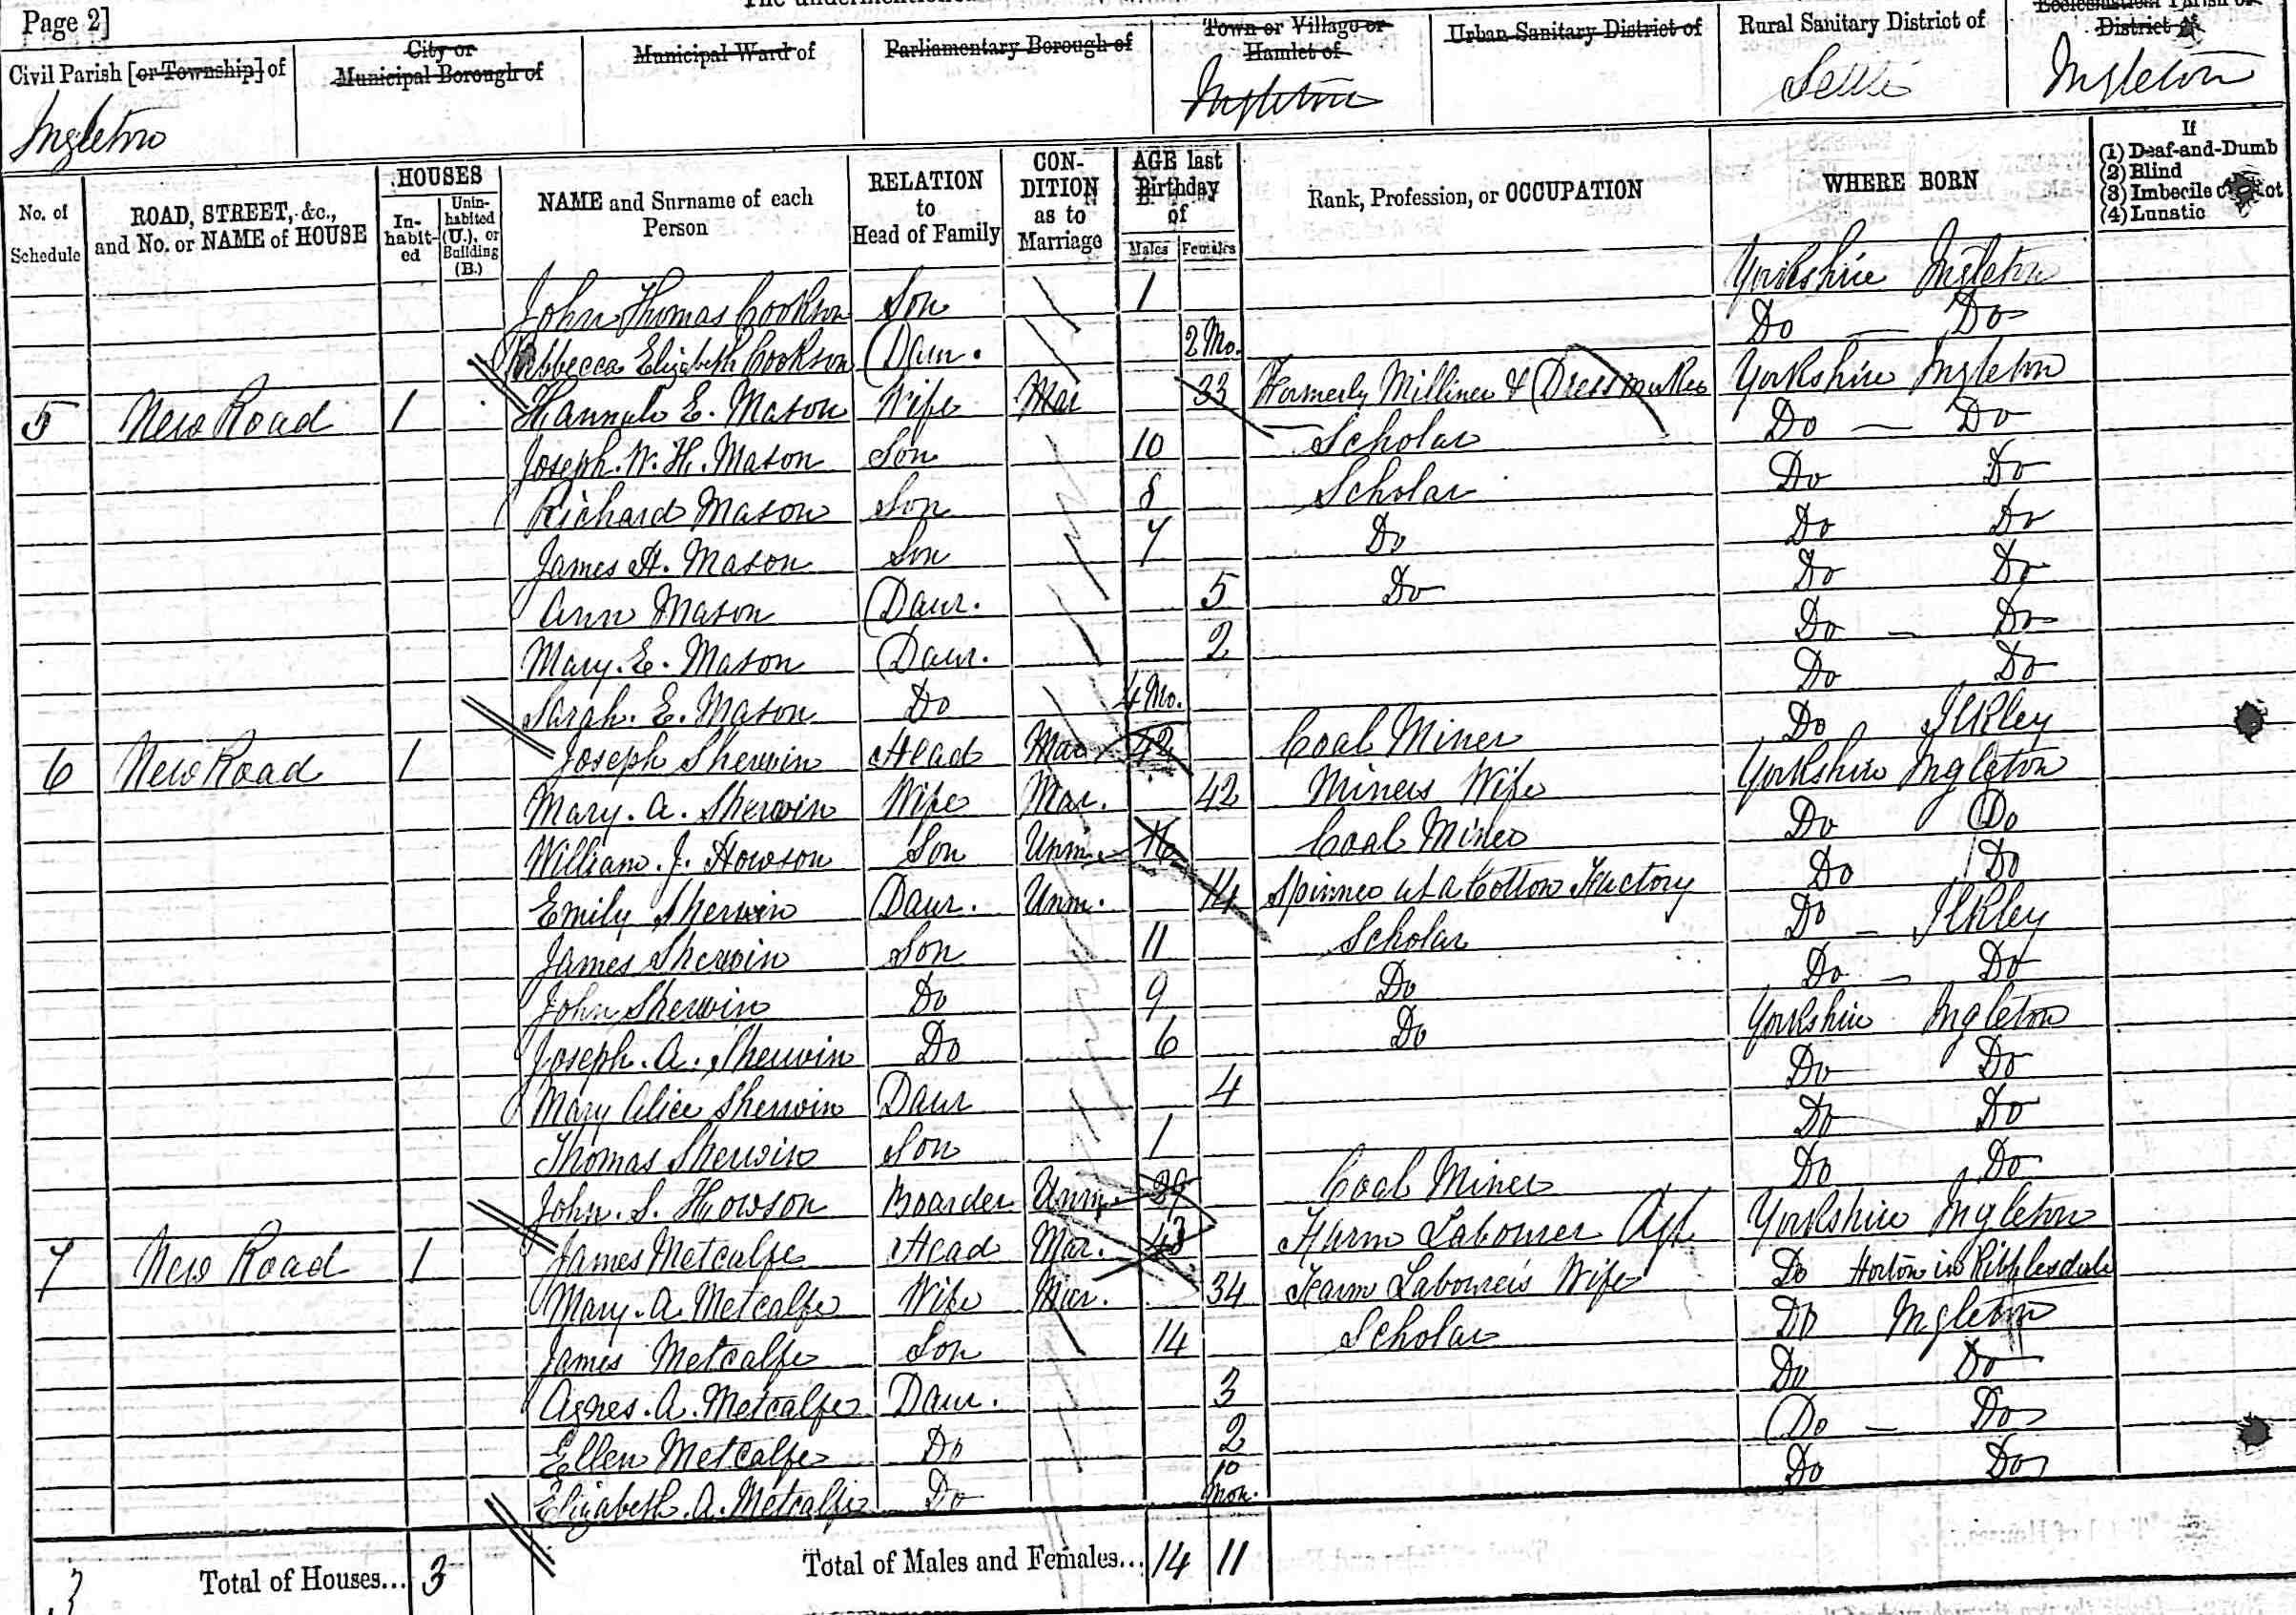 Page 2]
Civil Parish [or Township] of
Ingleton
City or
Municipal Borough of
Municipal Ward of
Parliamentary Borough of
Town or Village or
Hamlet of
Ingleton
Urban Sanitary District of
Rural Sanitary District of
Settle
District of
Ingleton
No. of
Schedule
ROAD, STREET, &c.,
and No. or NAME of HOUSE
HOUSES
In-
habit-
ed
Unin-
habited
(U.), or
Building
(B.)
NAME and Surname of each
Person
RELATION
to
Head of Family
CON-
DITION
as to
Marriage
AGE last
Birthday
of
Males Females
Rank, Profession, or OCCUPATION
WHERE BORN
If
(1) Deaf-and-Dumb
(2) Blind
(3) Imbecile
(4) Lunatic
John Thomas Cookson Son 1 Yorkshire Ingleton
Rebbecca Elizabeth Cookson Daur. 2 Mo. Do — Do
5 New Road 1 Hannah E. Mason Wife Mar 33 Formerly Milliner & Dressmaker Yorkshire Ingleton
Joseph. W. H. Mason Son 10 Scholar Do — Do
Richard Mason Son 8 Scholar Do Do
James H. Mason Son 7 Do Do Do
Ann Mason Daur. 5 Do Do Do
Mary. E. Mason Daur. 2 Do — Do
Sarah. E. Mason Do 4 Mo. Do Do
6 New Road 1 Joseph Sherwin Head Mar 42 Coal Miner Do Ilkley
Mary. A. Sherwin Wife Mar. 42 Miners Wife Yorkshire Ingleton
William. J. Howson Son Unm. 16 Coal Miner Do Do
Emily Sherwin Daur. Unm. 14 Spinner at a Cotton Factory Do Do
James Sherwin Son 11 Scholar Do — Ilkley
John Sherwin Do 9 Do Do — Do
Joseph. A. Sherwin Do 6 Do Yorkshire Ingleton
Mary Alice Sherwin Daur 4 Do Do
Thomas Sherwin Son 1 Do Do
John. S. Howson Boarder Unm. 29 Coal Miner Do Do
7 New Road 1 James Metcalfe Head Mar. 43 Farm Labourer Yorkshire Ingleton
Mary. A. Metcalfe Wife Mar. 34 Farm Labourers Wife Do Horton in Ribblesdale
James Metcalfe Son 14 Scholar Do Ingleton
Agnes. A. Metcalfe Daur. 3 Do Do
Ellen Metcalfe Do 2 Do — Do
Elizabeth. A. Metcalfe Do 10 Mon. Do Do
3 Total of Houses... 3 Total of Males and Females... 14 11